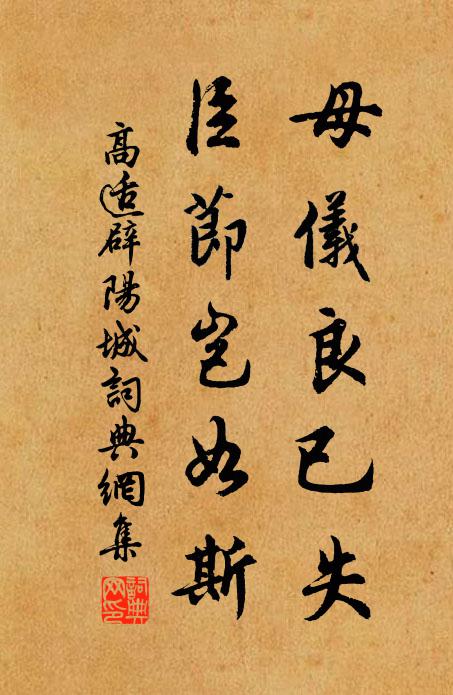 母儀良已失
臣節豈如斯
高適辟陽城詞典網集
詞典
网印